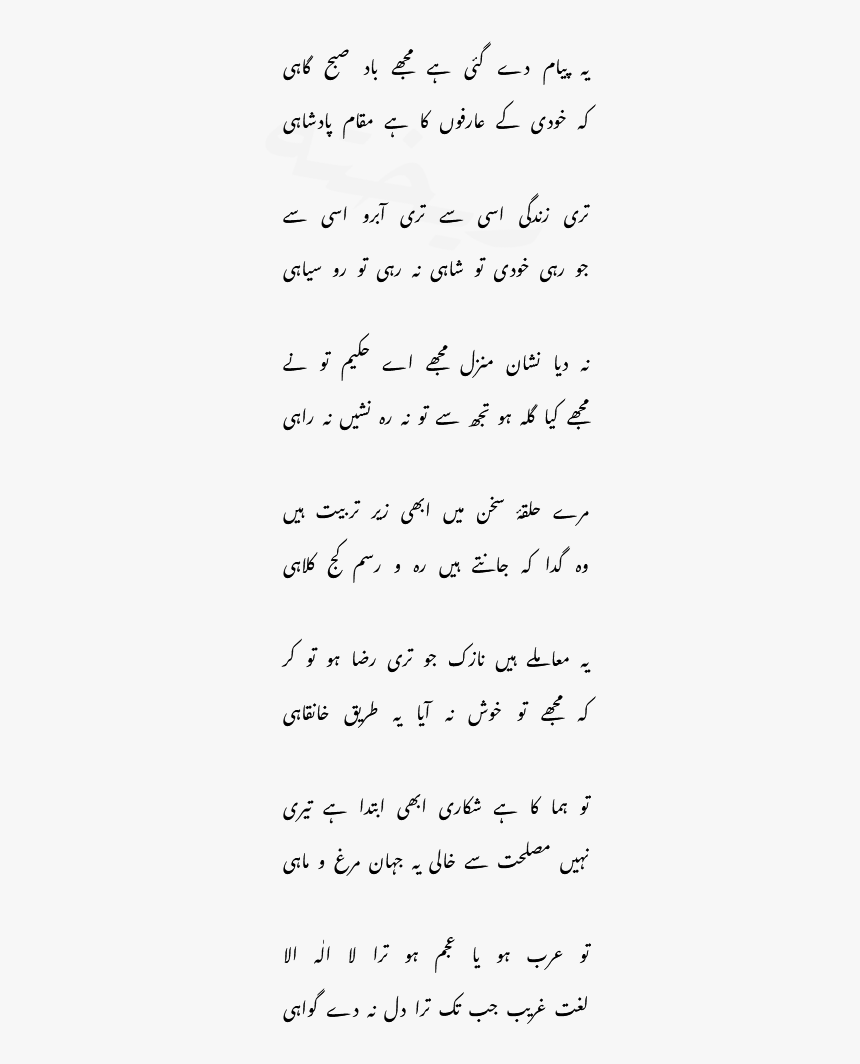 یہ پیام دے گئی ہے مجھے باد صبح گاہی
کہ خودی کے عارفوں کا ہے مقام پادشاہی
تری زندگی اسی سے تری آبرو اسی سے
جو رہی خودی تو شاہی نہ رہی تو رو سیاہی
نہ دیا نشان منزل مجھے اے حکیم تو نے
مجھے کیا گلہ ہو تجھ سے تو نہ رہ نشیں نہ راہی
مرے حلقۂ سخن میں ابھی زیر تربیت ہیں
وہ گدا کہ جانتے ہیں رہ و رسم کج کلاہی
یہ معاملے ہیں نازک جو تری رضا ہو تو کر
کہ مجھے تو خوش نہ آیا یہ طریق خانقاہی
تو ہما کا ہے شکاری ابھی ابتدا ہے تیری
نہیں مصلحت سے خالی یہ جہان مرغ و ماہی
تو عرب ہو یا عجم ہو ترا لا الٰہ الا
لغت غریب جب تک ترا دل نہ دے گواہی